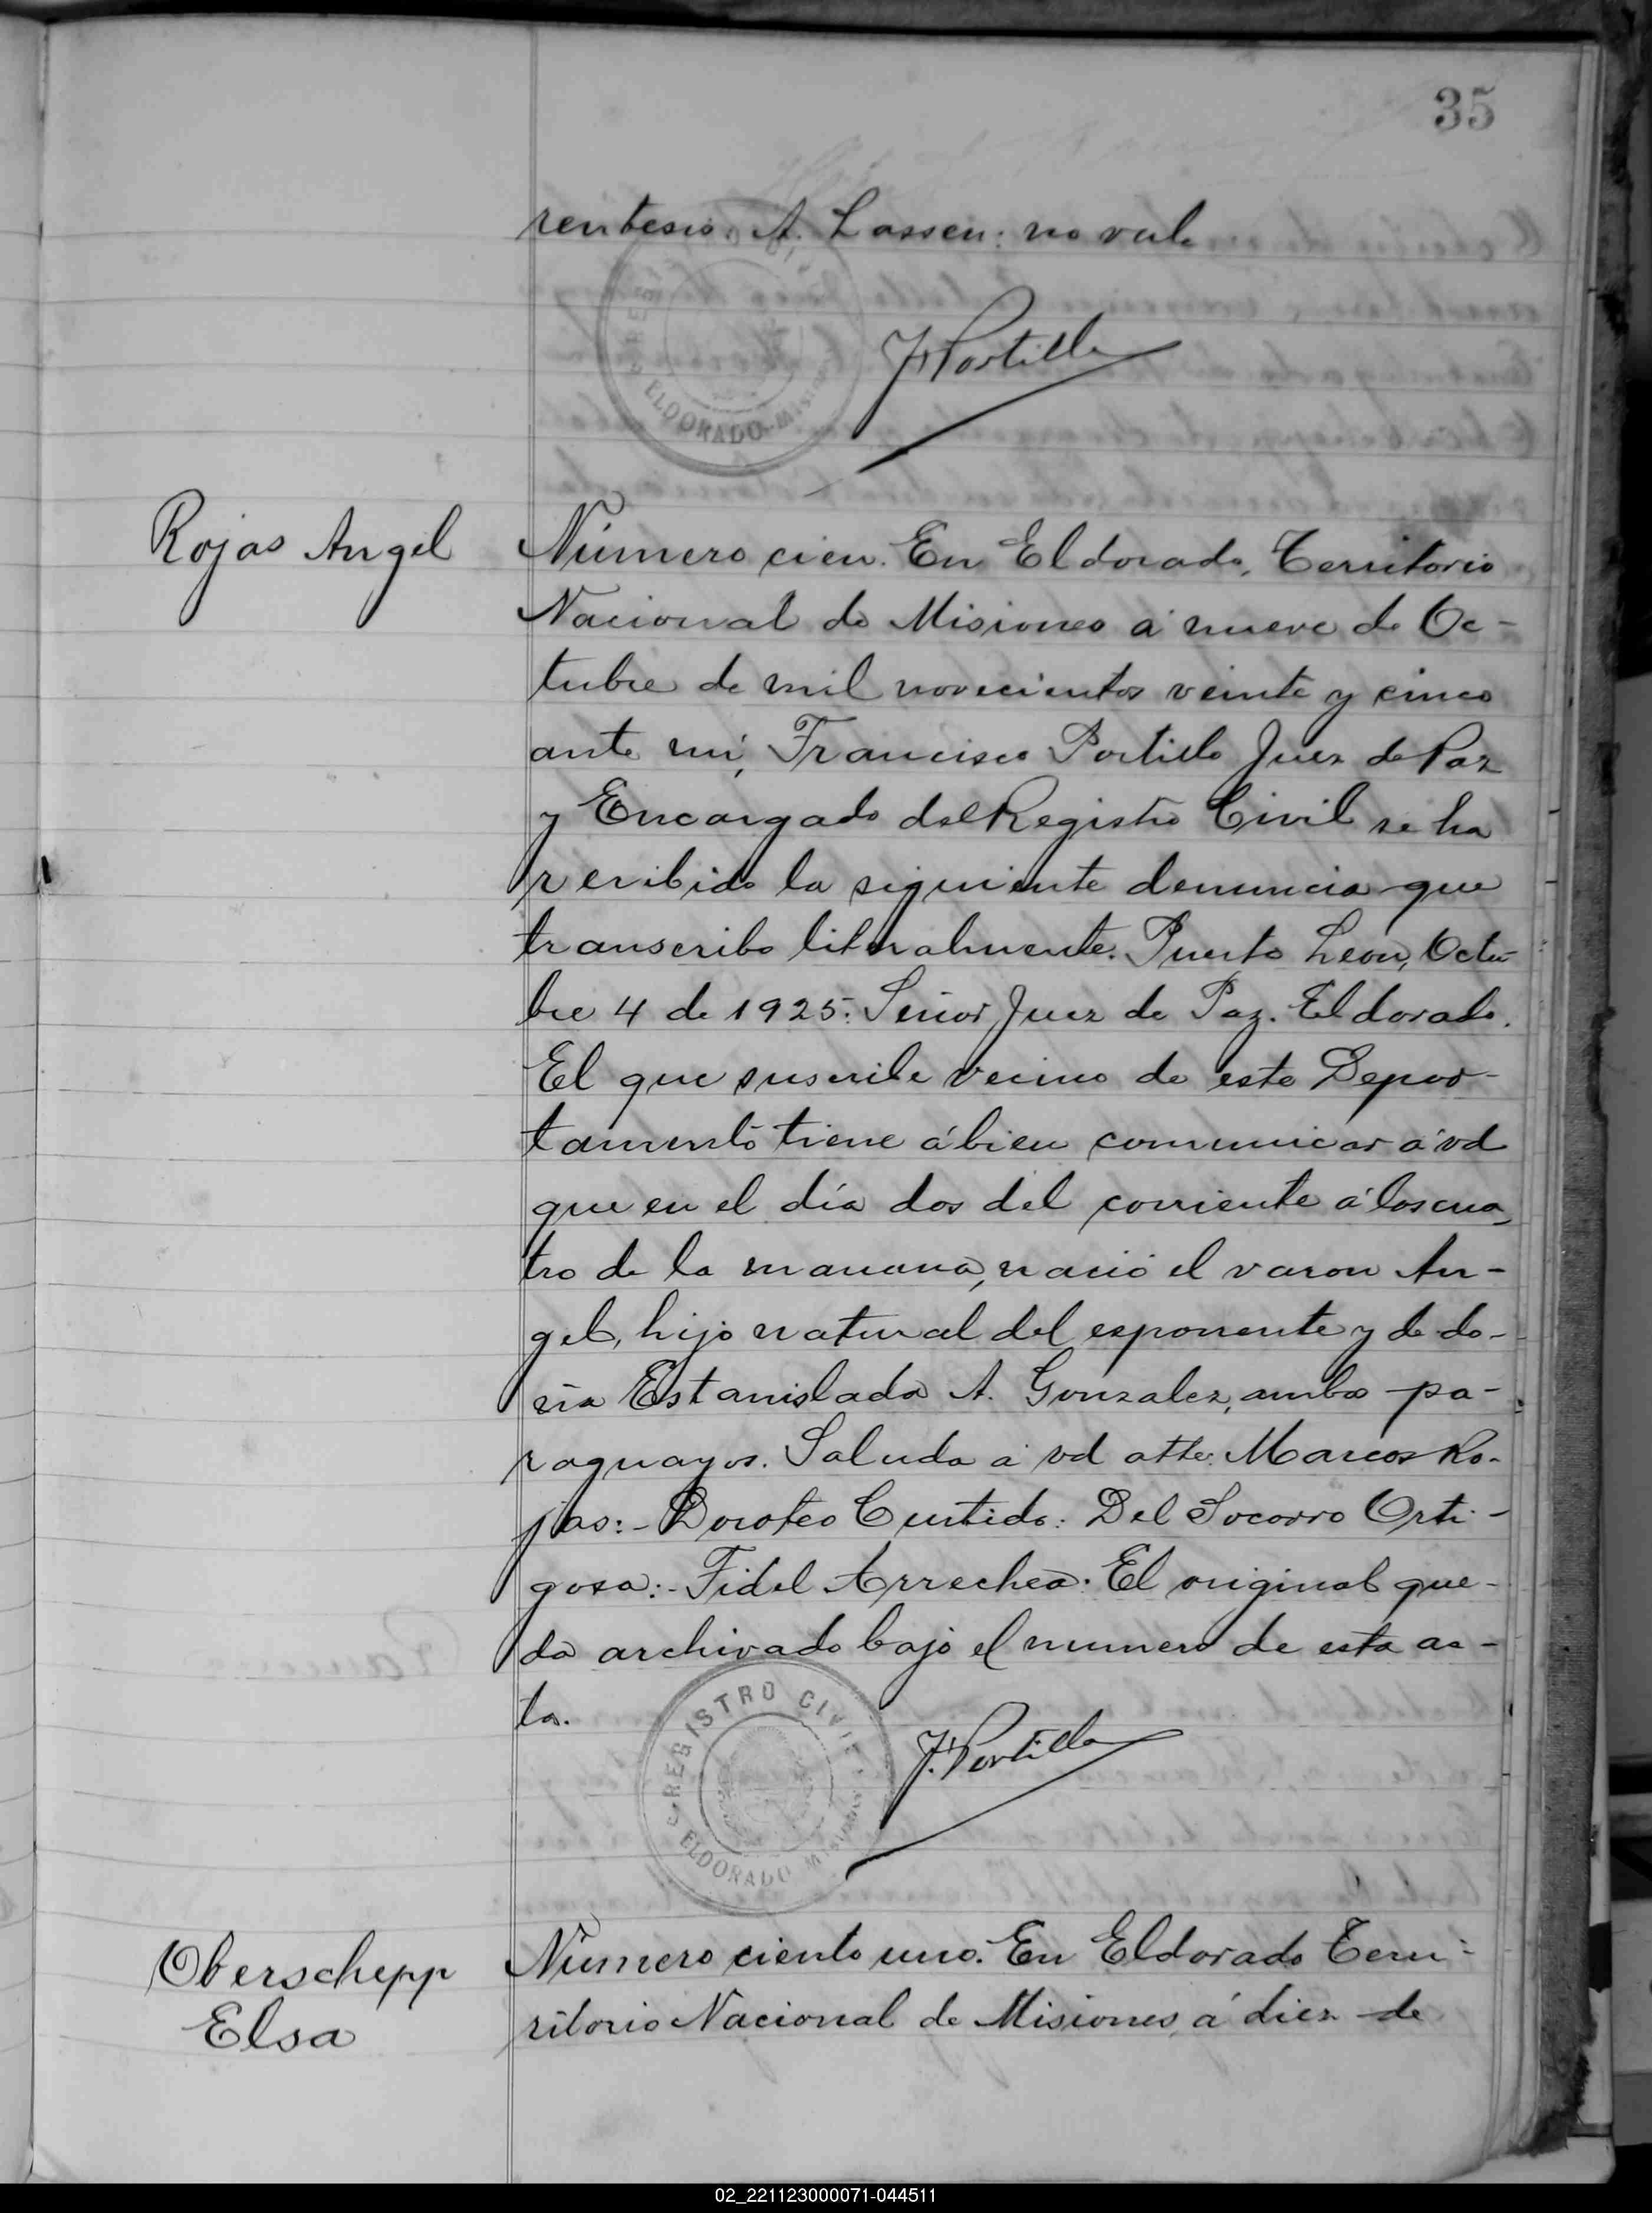 35
rentesis. A. Lassen: no vale
REG
ELDORADO-Misiones
F. Portillo
Rojas Angel
Número cien. En Eldorado, Territorio
Nacional de Misiones á nueve de Oc-
tubre de mil novecientos veinte y cinco
ante mi, Francisco Portillo Juez de Paz
y Encargado del Registro Civil se ha
recibido la siguiente denuncia que
transcribo literalmente. Puerto Leon, Octu-
bre 4 de 1925: Señor Juez de Paz. Eldorado.
El que suscribe vecino de este Depar-
tamento tiene á bien comunicar á vd
que en el día dos del corriente á las cua-
tro de la manana, nació el varon An-
gel, hijo natural del esponente y de do-
ña Estanislada A. Gonzalez, ambos pa-
raguayos. Saluda á vd atte. Marcos Ro-
jas:- Doroteo Curtido: Del Socorro Orti-
goza:- Fidel Arrechea: El original que-
da archivado bajo el numero de esta ac-
ta.
REGISTRO CIVIL
ELDORADO MISIONES
F. Portillo
Oberschepp
Elsa
Número ciento uno. En Eldorado Terri-
ritorio Nacional de Misiones, á diez de
02_221123000071-044511